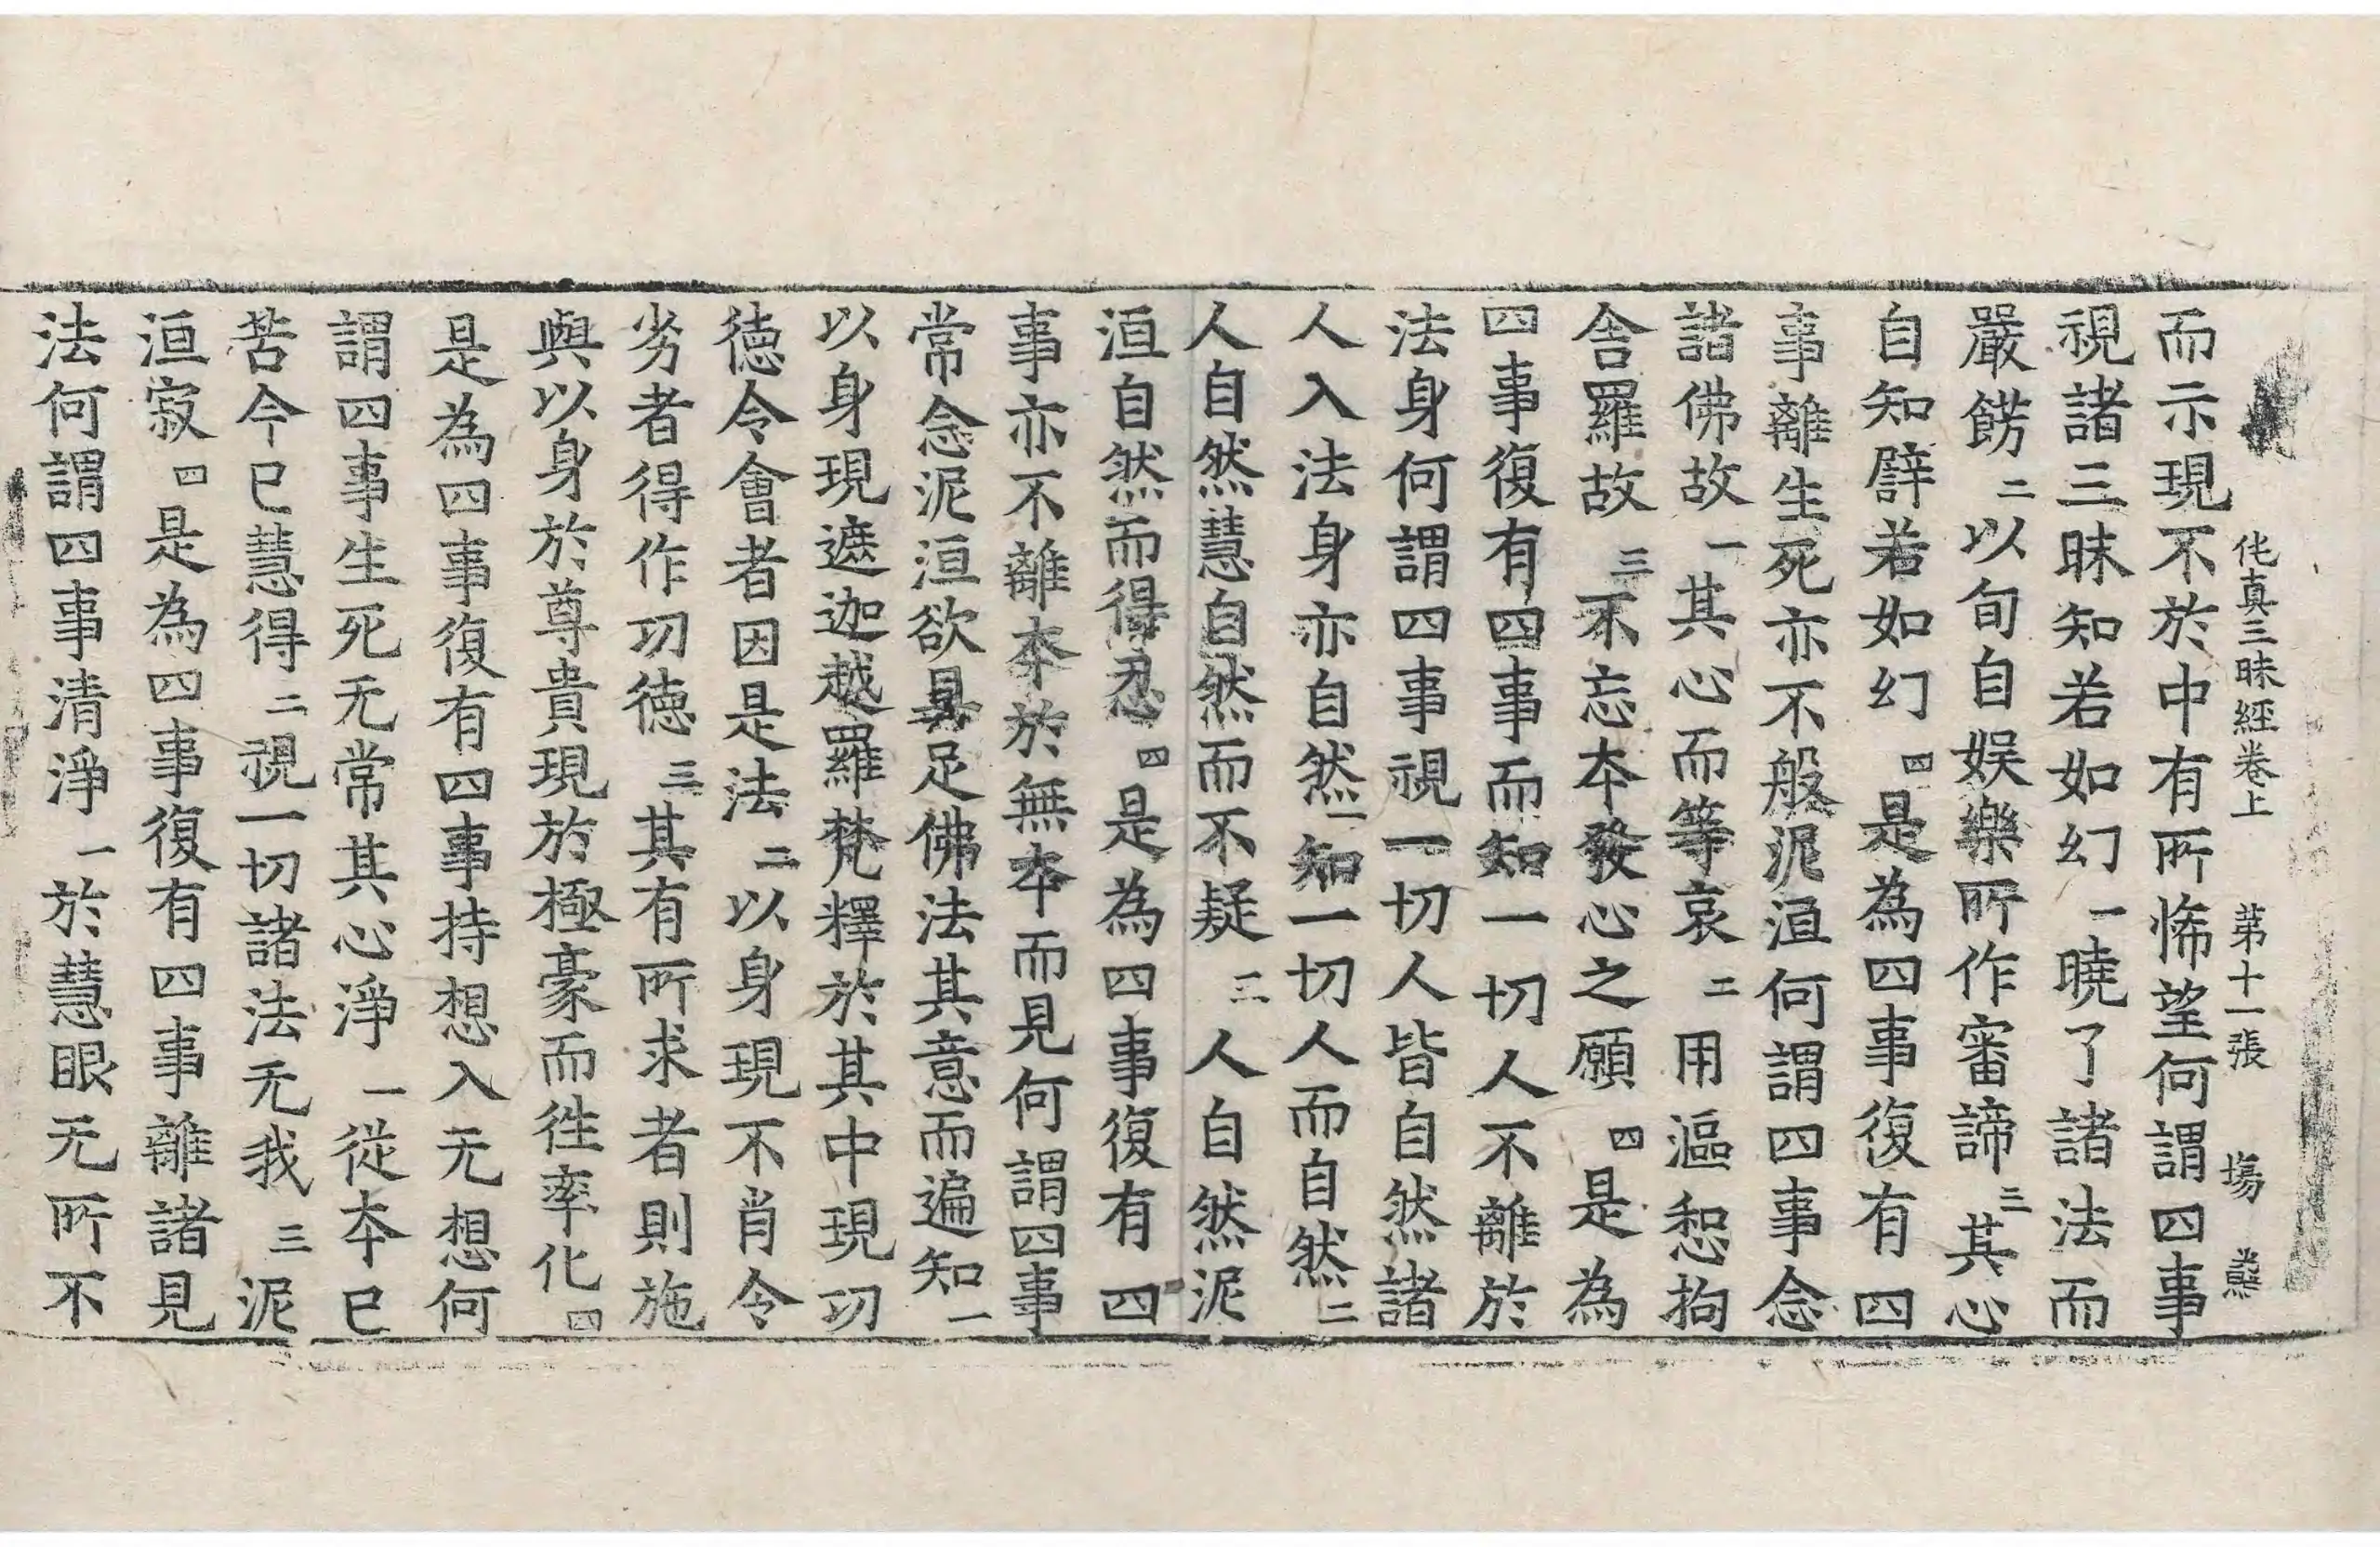 他真三昧經卷上 苐十一張 塲
而示現不於中有所悕望何謂四事
視諸三昧知若如幻一曉了諸法而
嚴餝二以旬自娛樂所作審諦三其心
自知譬若如幻四是為四事復有四
事離生死亦不般泥洹何謂四事念
諸佛故一其心而等哀二用漚惒拘
舍羅故三不忘夲發心之願四是為
四事復有四事而知一切人不離於
法身何謂四事視一切人皆自然諸
人入法身亦自然一知一切人而自然二
人自然慧自然而不疑三人自然泥
洹自然而得忍四是為四事復有四
事亦不離夲於無夲而見何謂四事
常念泥洹欲具足佛法其意而遍知一
以身現遮迦越羅梵釋於其中現功
徳令會者因是法二以身現不肖令
劣者得作功徳三其有所求者則施
與以身於尊貴現於極豪而徃率化四
是為四事復有四事持想入无想何
謂四事生死无常其心淨一從夲已
苦今已慧得二視一切諸法无我三泥
洹寂四是為四事復有四事離諸見
法何謂四事清淨一於慧眼无所不